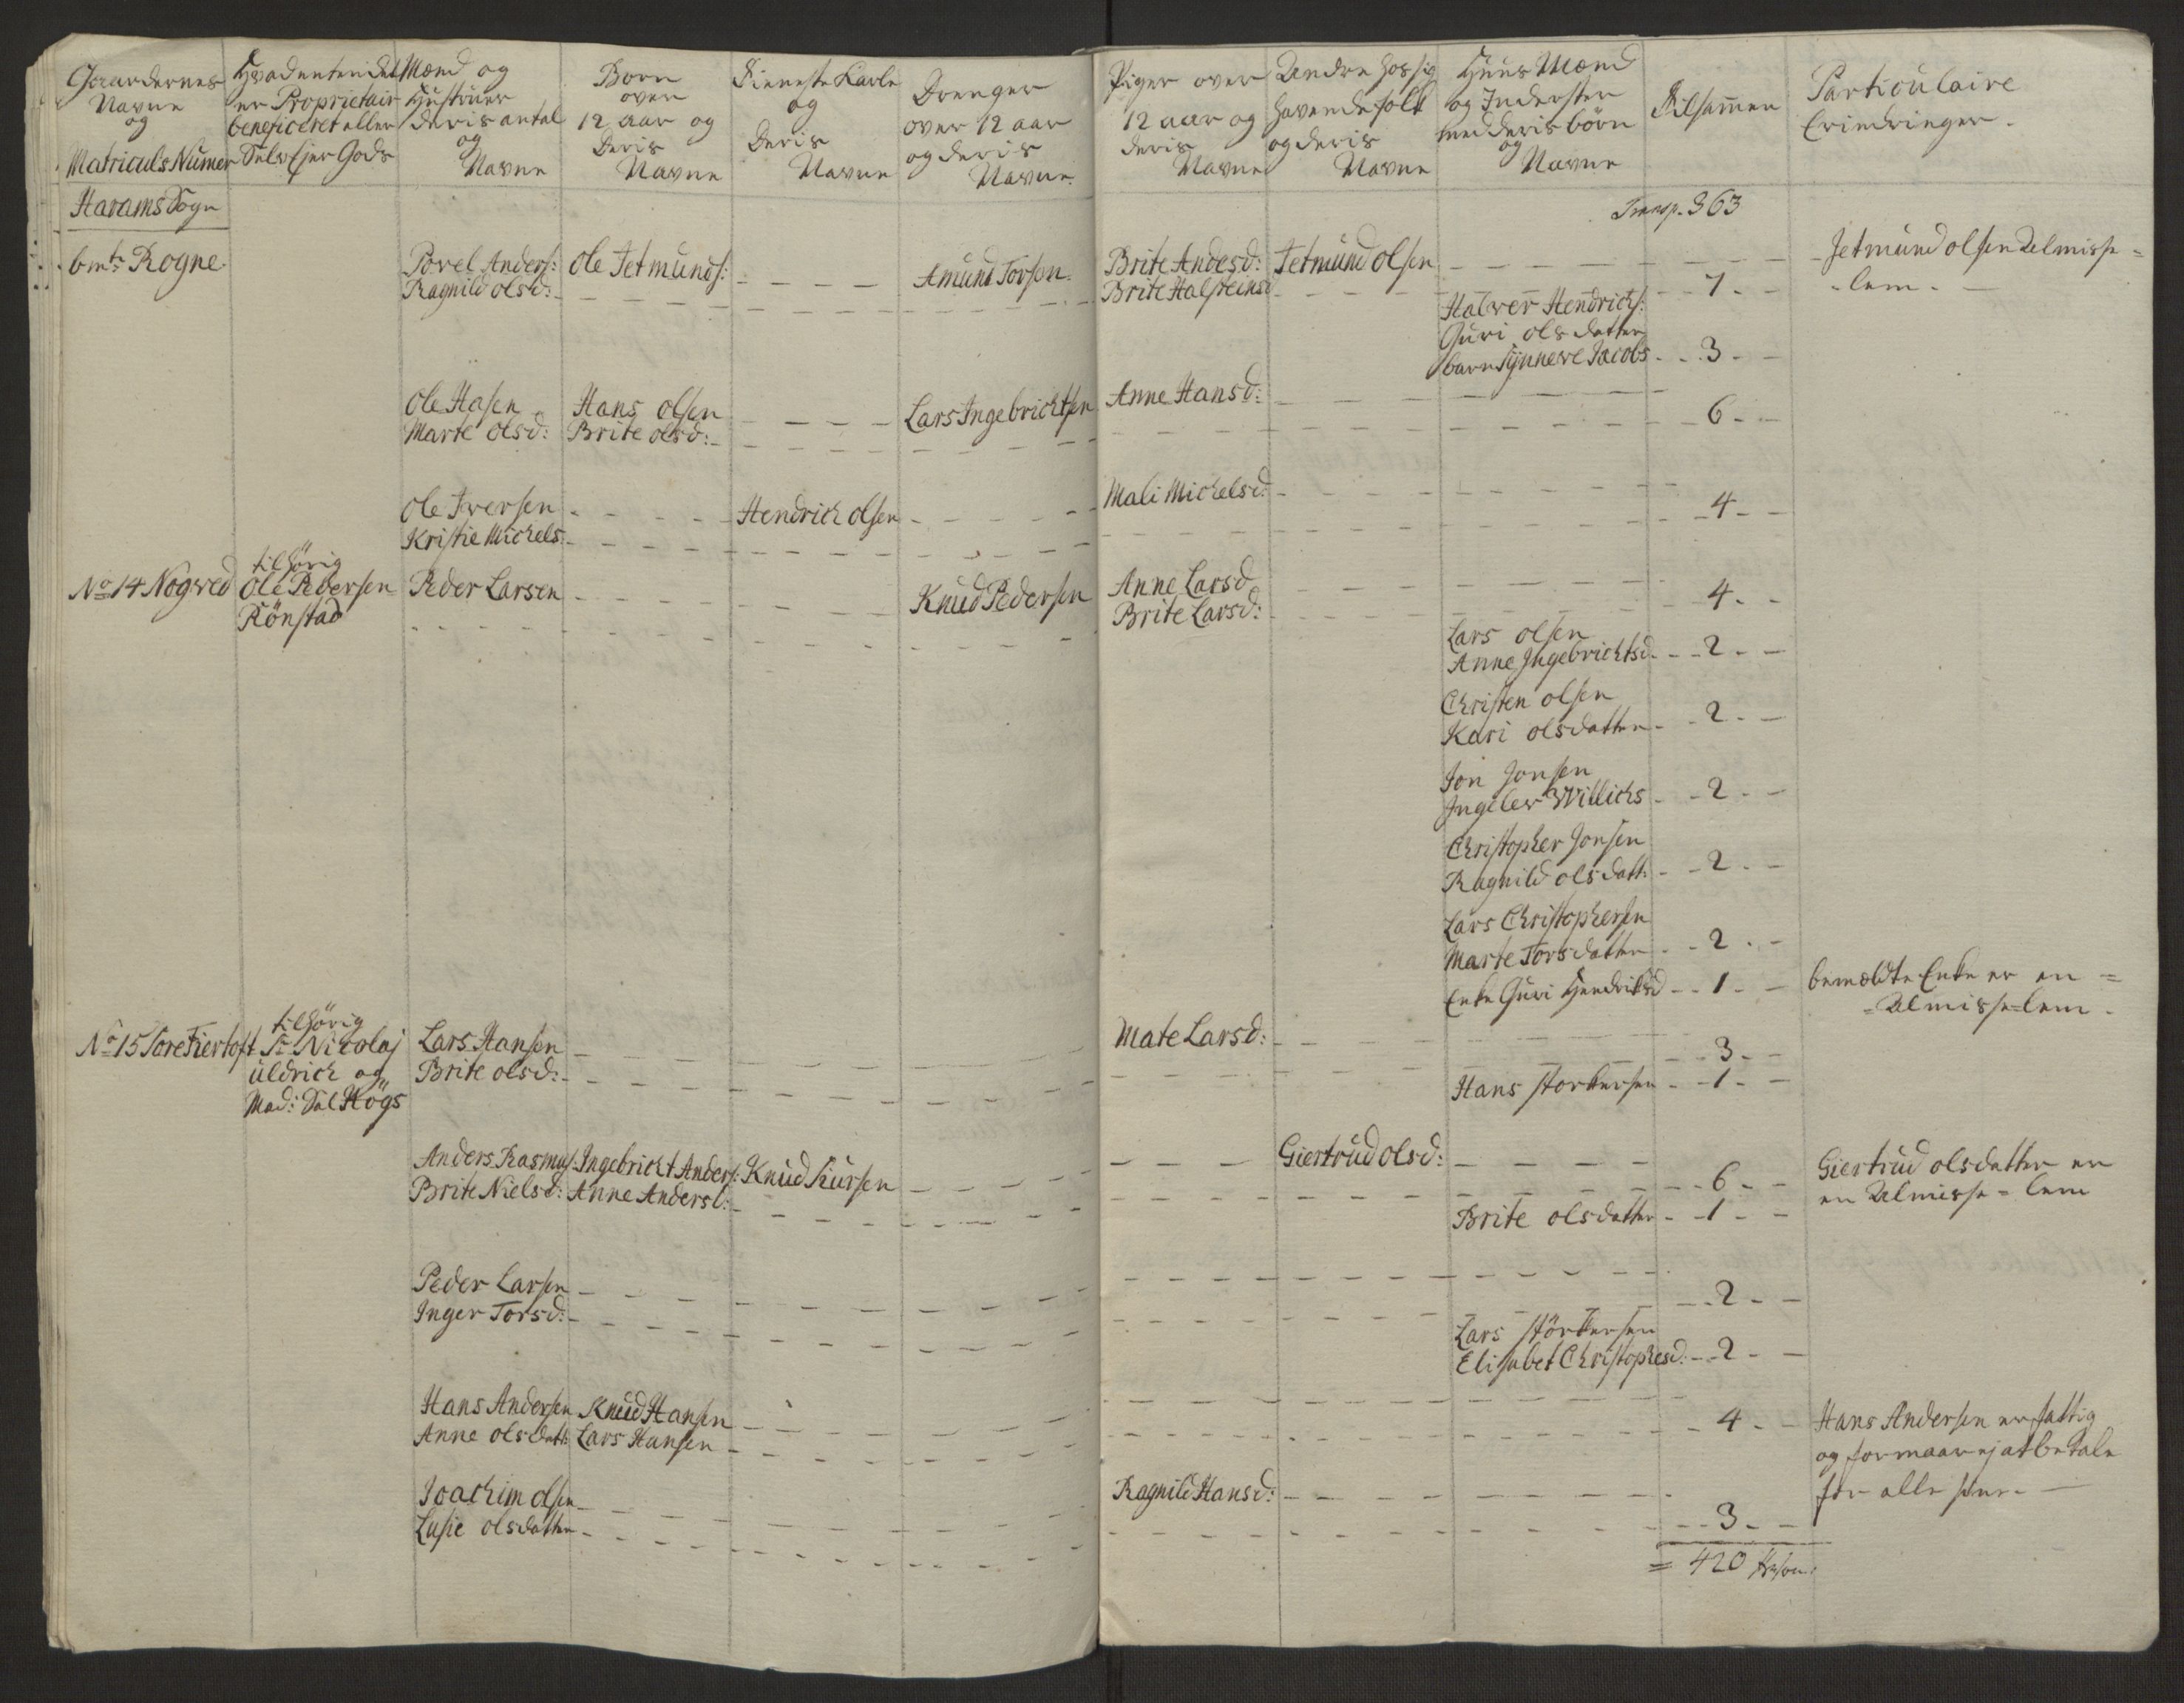 Gaardernes
Navne
og
Matriculs Numer
Hvadenten det
er Proprietair
beneficeret eller
Selv Ejer Gods
Mænd og
Hustruer
deris antal
og
Navne
Børn
over
12 aar og
Deris
Navne
Tieneste Karle
og
Deris
Navne
Drenger
over 12 aar
og deris
Navne.
Piger over
12 aar og
deris
Navne
Andre hos sig
havende folk
og deris
Navne
Huus Mænd
og Inderster
med deris børn
og
Navne
Tilsamen
Particulaire
Erindringer.
Harams Sogn
Transp. 363
bmte Rogne.
Povel Anders: Ole Jetmunds: - - - - Amund Torsen. Brite Andesd: Jetmund olsen - - - - Jetmund olsen Almisse =
Ragnild olsd: - - - - Brite Halsteinsd - - - - 7 - - = lem. -
Halver Hendrichs:
Guri ols datter
barn Synneve Jacobs - - 3 - -
Ole Hasen Hans olsen - - - - Lars Ingebrichtsen Anne Hansd: - - - -
Marte olsd: Brite olsd: - - - - 6 - -
Ole Iversen - - - - Hendrich olsen - - - - Mali Michelsd: - - - - 4 - -
Kristie Michels: - - - -
tilhörig
No 14 Nogved Ole Pedersen Peder Larsen - - - - Knud Pedersen Anne Larsd - - - -
Rönstad - - - - Brite Larsd: - - - - 4 - -
Lars olsen
Anne Ingebrichtsd - - 2 - -
Christen olsen
Kari olsdatter - - 2 - -
Jon Jonsen
Ingelev Willichs - - 2 - -
Christopher Jonsen
Ragnild olsdatt: - - 2 - -
Lars Christophersen
Marte Torsdatter - - 2 - -
Enke Guri Hendriksd - - 1 - - bemældte Enke er en =
= Almisse = lem.
tilhörig
No 15 Tore Fiertoft Sr Nicolaj Lars Hansen - - - - Mate Larsd: - - - -
uldrich og Brite olsd: - - - - 3 - -
Mad: Sal Högs
Hans Storkersen - - 1 - -
Anders Rasmus: Ingebricht Anders: Knud Siursen - - - - Giertrud olsd: - - - - Giertrud olsdatter er
Brite Nielsd: Anne Andersd: - - - - 6 - - en Almisse = lem
Brite olsdatter - - 1 - -
Peder Larsen - - - -
Inger Torsd: - - - - 2 - -
Lars Störkersen
Elisabet Christophesd: - - 2 - -
Hans Andersen Knud Hansen - - - - 4 - - Hans Andersen er fattig
Anne olsdatt: Lars Hansen - - - - og formaar ej at betale
Joachim olsen - - - - Ragnild Hansd: - - - - for alle sine. -
Lusie olsdatter - - - - 3 - -
= 420 Person: